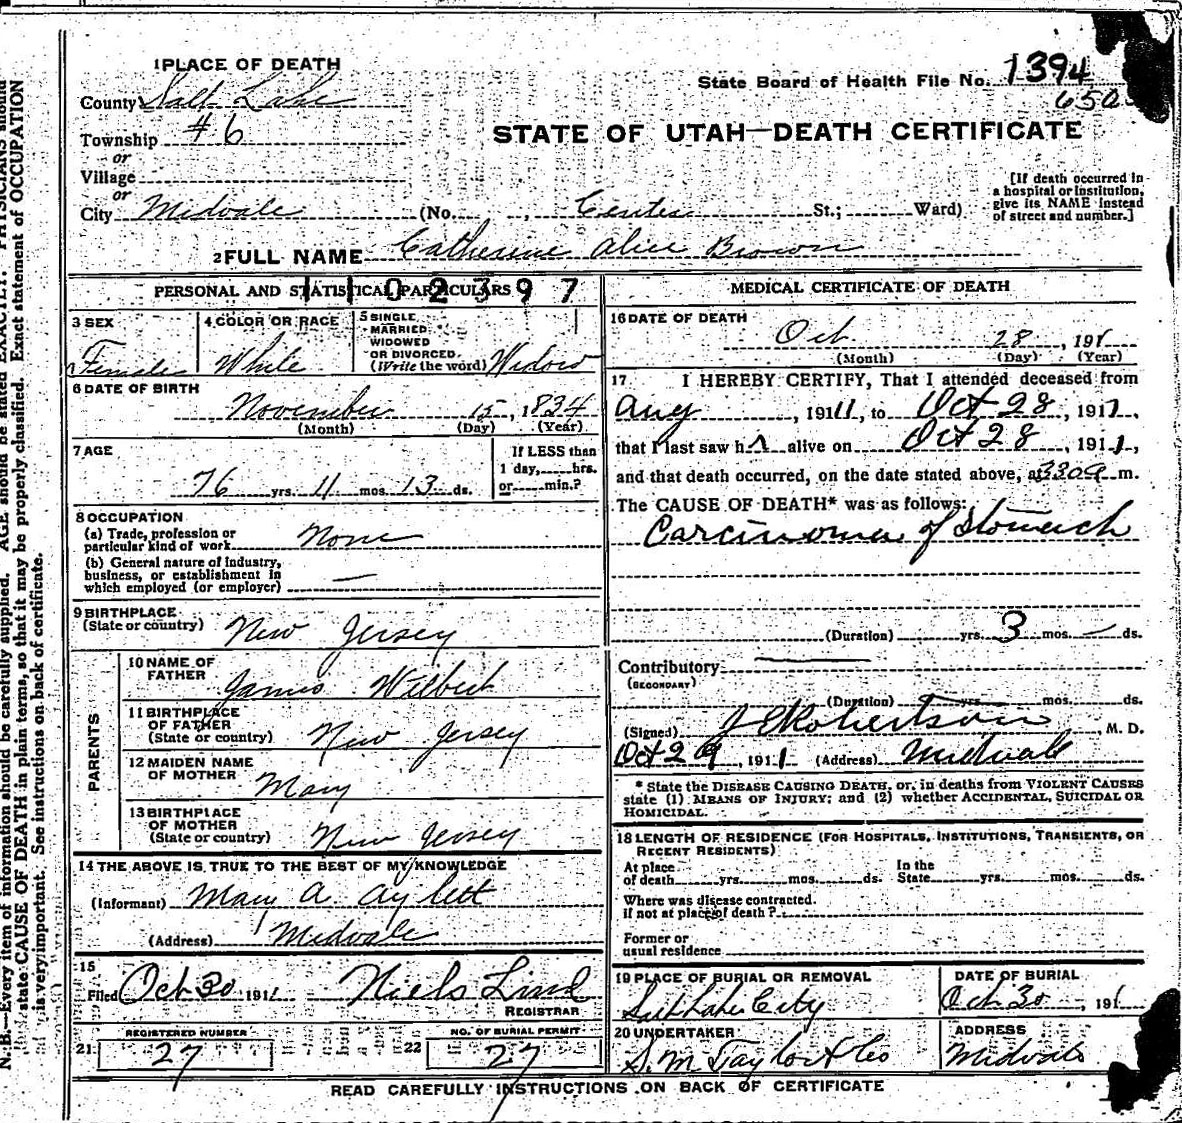 1 PLACE OF DEATH
County Salt Lake
Township #6
or
Village
or
City Midvale (No. , Center St.; Ward)
State Board of Health File No. 1394
650
STATE OF UTAH—DEATH CERTIFICATE
[If death occurred in
a hospital or institution,
give its NAME instead
of street and number.]
2 FULL NAME Catherine Alice Brown
PERSONAL AND STATISTICAL PARTICULARS
1102397
3 SEX
Female
4 COLOR OR RACE
White
5 SINGLE,
MARRIED,
WIDOWED
OR DIVORCED.
(Write the word) Widow
6 DATE OF BIRTH
November 15, 1834
(Month) (Day) (Year)
7 AGE
76 yrs. 11 mos. 13 ds.
If LESS than
1 day, hrs.
or min.?
8 OCCUPATION
(a) Trade, profession or
particular kind of work None
(b) General nature of industry,
business, or establishment in
which employed (or employer) —
9 BIRTHPLACE
(State or country) New Jersey
PARENTS
10 NAME OF
FATHER James
11 BIRTHPLACE
OF FATHER
(State or country) New Jersey
12 MAIDEN NAME
OF MOTHER
Mary
13 BIRTHPLACE
OF MOTHER
(State or country) New Jersey
14 THE ABOVE IS TRUE TO THE BEST OF MY KNOWLEDGE
(Informant) Mary A. Aylett
(Address) Midvale
15
Filed Oct 30 1911 Niels Lind
REGISTRAR
REGISTERED NUMBER
21 27
NO. OF BURIAL PERMIT
22 27
MEDICAL CERTIFICATE OF DEATH
16 DATE OF DEATH
Oct 28, 1911
(Month) (Day) (Year)
17 I HEREBY CERTIFY, That I attended deceased from
Aug , 1911, to Oct 28, 1911,
that I last saw hr alive on Oct 28, 1911,
and that death occurred, on the date stated above, at 330 a m.
The CAUSE OF DEATH* was as follows:
Carcinoma of Stomach
(Duration) yrs. 3 mos. — ds.
Contributory —
(SECONDARY)
(Duration) yrs. mos. ds.
(Signed) J E Robertson, M. D.
Oct 29, 1911 (Address) Midvale
* State the DISEASE CAUSING DEATH, or, in deaths from VIOLENT CAUSES
state (1) MEANS OF INJURY; and (2) whether ACCIDENTAL, SUICIDAL OR
HOMICIDAL.
18 LENGTH OF RESIDENCE (FOR HOSPITALS, INSTITUTIONS, TRANSIENTS, OR
RECENT RESIDENTS)
At place
of death yrs. mos. ds.
In the
State yrs. mos. ds.
Where was disease contracted.
if not at place of death?
Former or
usual residence
19 PLACE OF BURIAL OR REMOVAL
Salt Lake City
DATE OF BURIAL
Oct 30, 191
20 UNDERTAKER
S. M. Taylor & Co
ADDRESS
Midvale
READ CAREFULLY INSTRUCTIONS ON BACK OF CERTIFICATE
N. B.—Every item of information should be carefully supplied. AGE should be stated EXACTLY. PHYSICIANS should
state CAUSE OF DEATH in plain terms, so that it may be properly classified. Exact statement of OCCUPATION
is very important. See instructions on back of certificate.